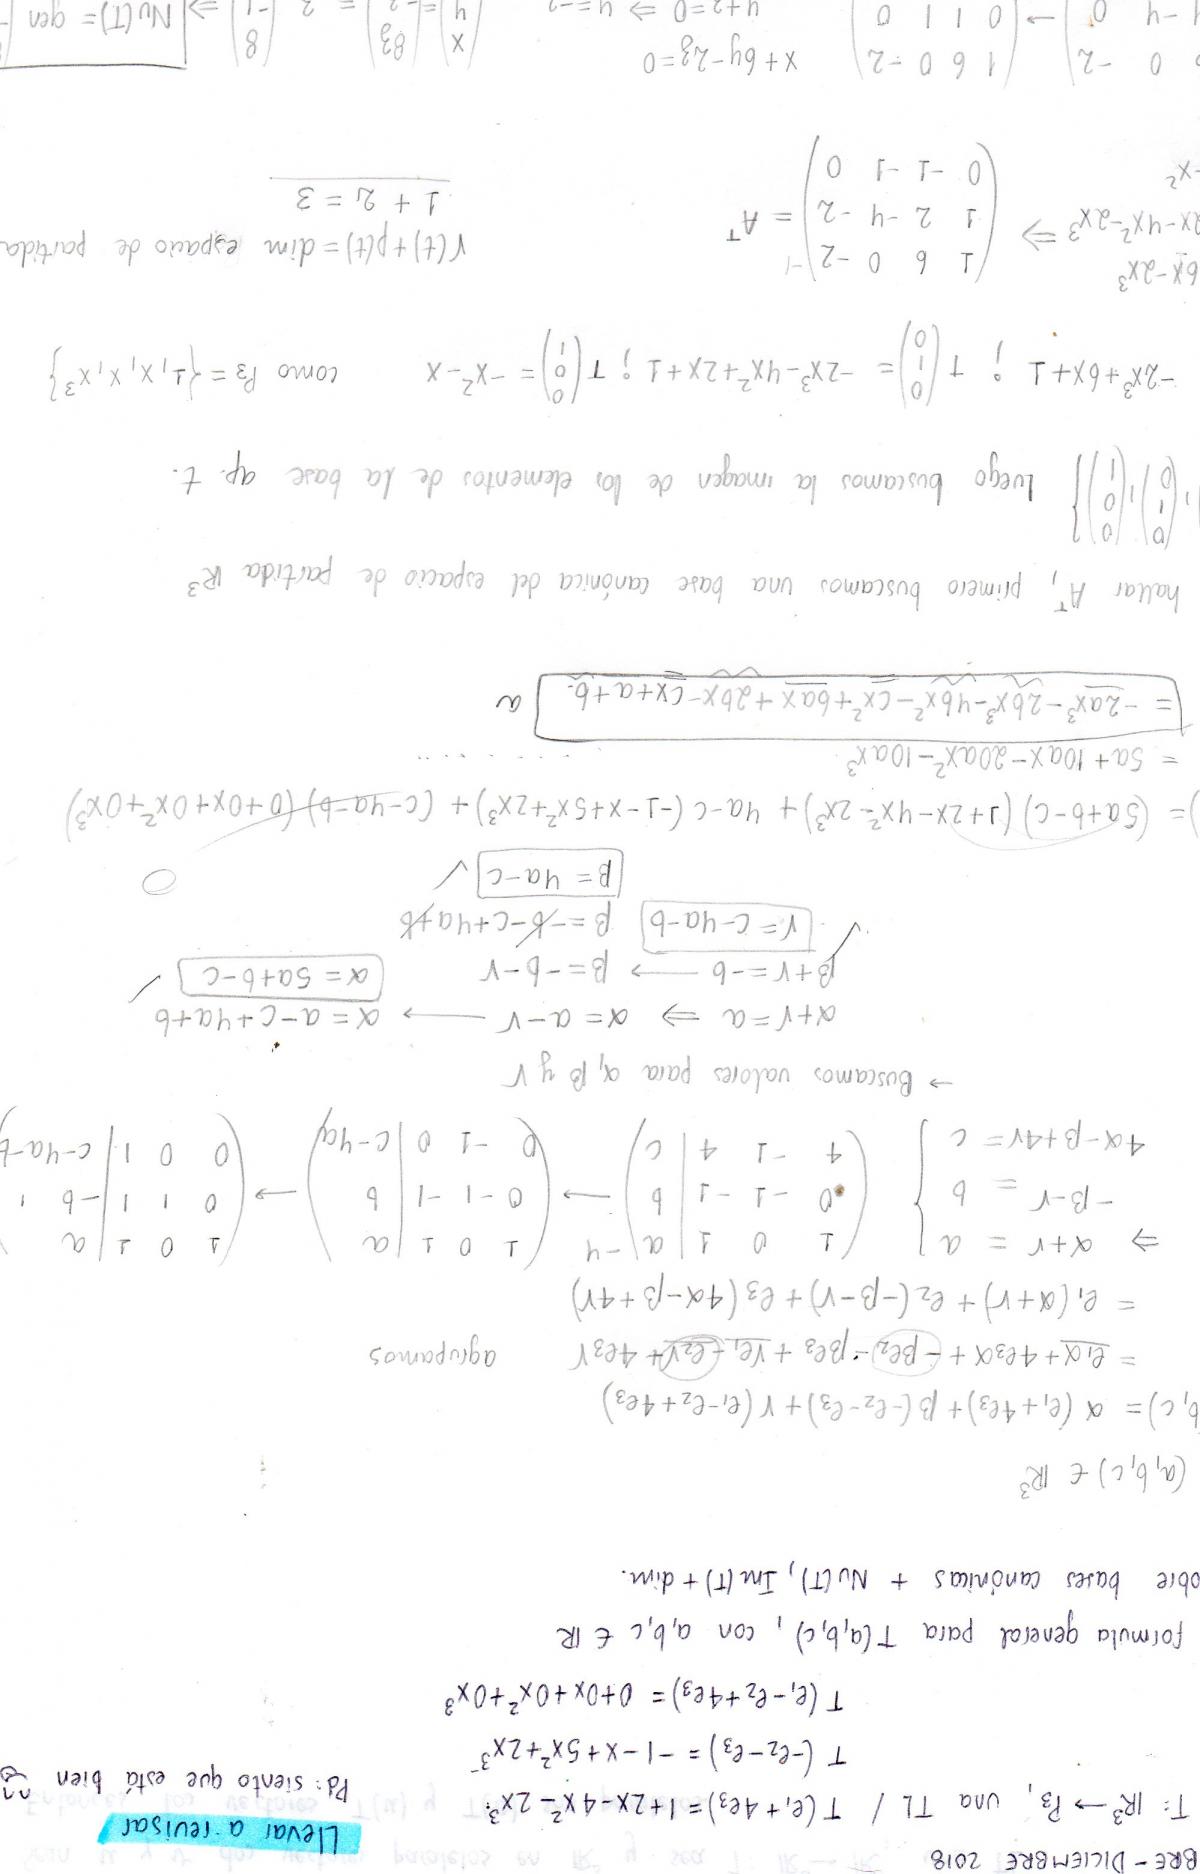 BRE - DICIEMBRE 2018
Llevar a revisar
T: ℝ³ → P₃, una TL / T(e₁+4e₃) = 1+2x-4x²-2x³.
Pd: siento que está bien
T(-e₂-e₃) = -1-x+5x²+2x³
T(e₁-e₂+4e₃) = 0+0x+0x²+0x³
formula general para T(a,b,c), con a,b,c ∈ ℝ
obre bases canónicas + Nu(T), Im(T) + dim.
(a,b,c) ∈ ℝ³
b,c) = α(e₁+4e₃) + β(-e₂-e₃) + γ(e₁-e₂+4e₃)
= e₁α+4e₃α + -βe₂ - βe₃ + γe₁ - e₂γ + 4e₃γ agrupamos
= e₁(α+γ) + e₂(-β-γ) + e₃(4α-β+4γ)
⇒ α+γ = a (1 0 1 | a) -4 (1 0 1 | a) (1 0 1 | a)
-β-γ = b (0 -1 -1 | b) → (0 -1 -1 | b) → (0 1 1 | -b)
4α-β+4γ = c (4 -1 4 | c) (0 -1 0 | c-4a) (0 0 1 | c-4a-b)
→ Buscamos valores para α, β y γ
α+γ = a ⇒ α = a-γ → α = a-c+4a+b
β+γ = -b → β = -b-γ α = 5a+b-c ✓
✓ γ = c-4a-b β = -b-c+4a+b
β = 4a-c ✓
) = (5a+b-c)(1+2x-4x²-2x³) + 4a-c(-1-x+5x²+2x³) + (c-4a-b)(0+0x+0x²+0x³)
0
= 5a+10ax-20ax²-10ax³ ......
= -2ax³-2bx³-4bx²-cx²+6ax+2bx-cx+a+b. a
hallar Aᵀ, primero buscamos una base canónica del espacio de partida ℝ³
, (0 1 0), (0 0 1)} Luego buscamos la imagen de los elementos de la base ap. t.
-2x³+6x+1 ; T(0 1 0) = -2x³-4x²+2x+1 ; T(0 0 1) = -x²-x como P₃ = {1, x, x, x³}
6x-2x³ (1 6 0 -2)⁻¹
2x-4x²-2x³ ⇒ (1 2 -4 -2) = Aᵀ γ(t)+ρ(t) = dim espacio de partida
-x² (0 -1 -1 0) 1 + 2 = 3
0 -2) (1 6 0 -2) x+6y-2z=0 (x (8z (8
-4 0 → (0 1 1 0 y+z=0 ⇒ y=-z y = -z = z -1 ⇒ Nu(T) = gen